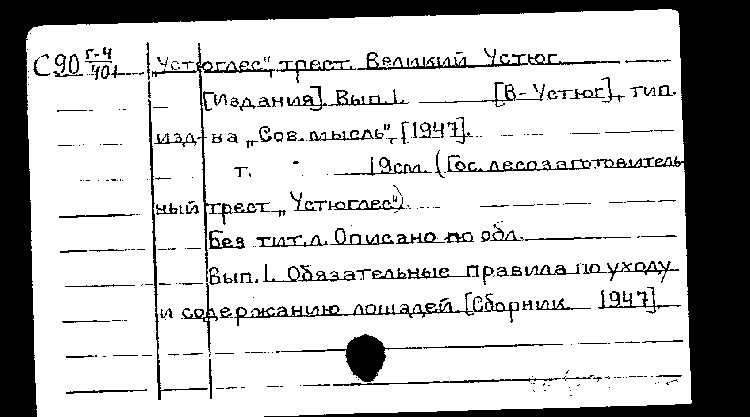 С90 Г-4/401 „Устюглес", трест. Великий Устюг.
[Издания]. Вып.1. [В-Устюг], тип.
изд-ва „Сов. мысль", [1947].
т. 19см. (Гос. лесозаготовитель-
ный трест „Устюглес").
Без тит.л. Описано по обл.
Вып.1. Обязательные правила по уходу
и содержанию лошадей. [Сборник 1947].